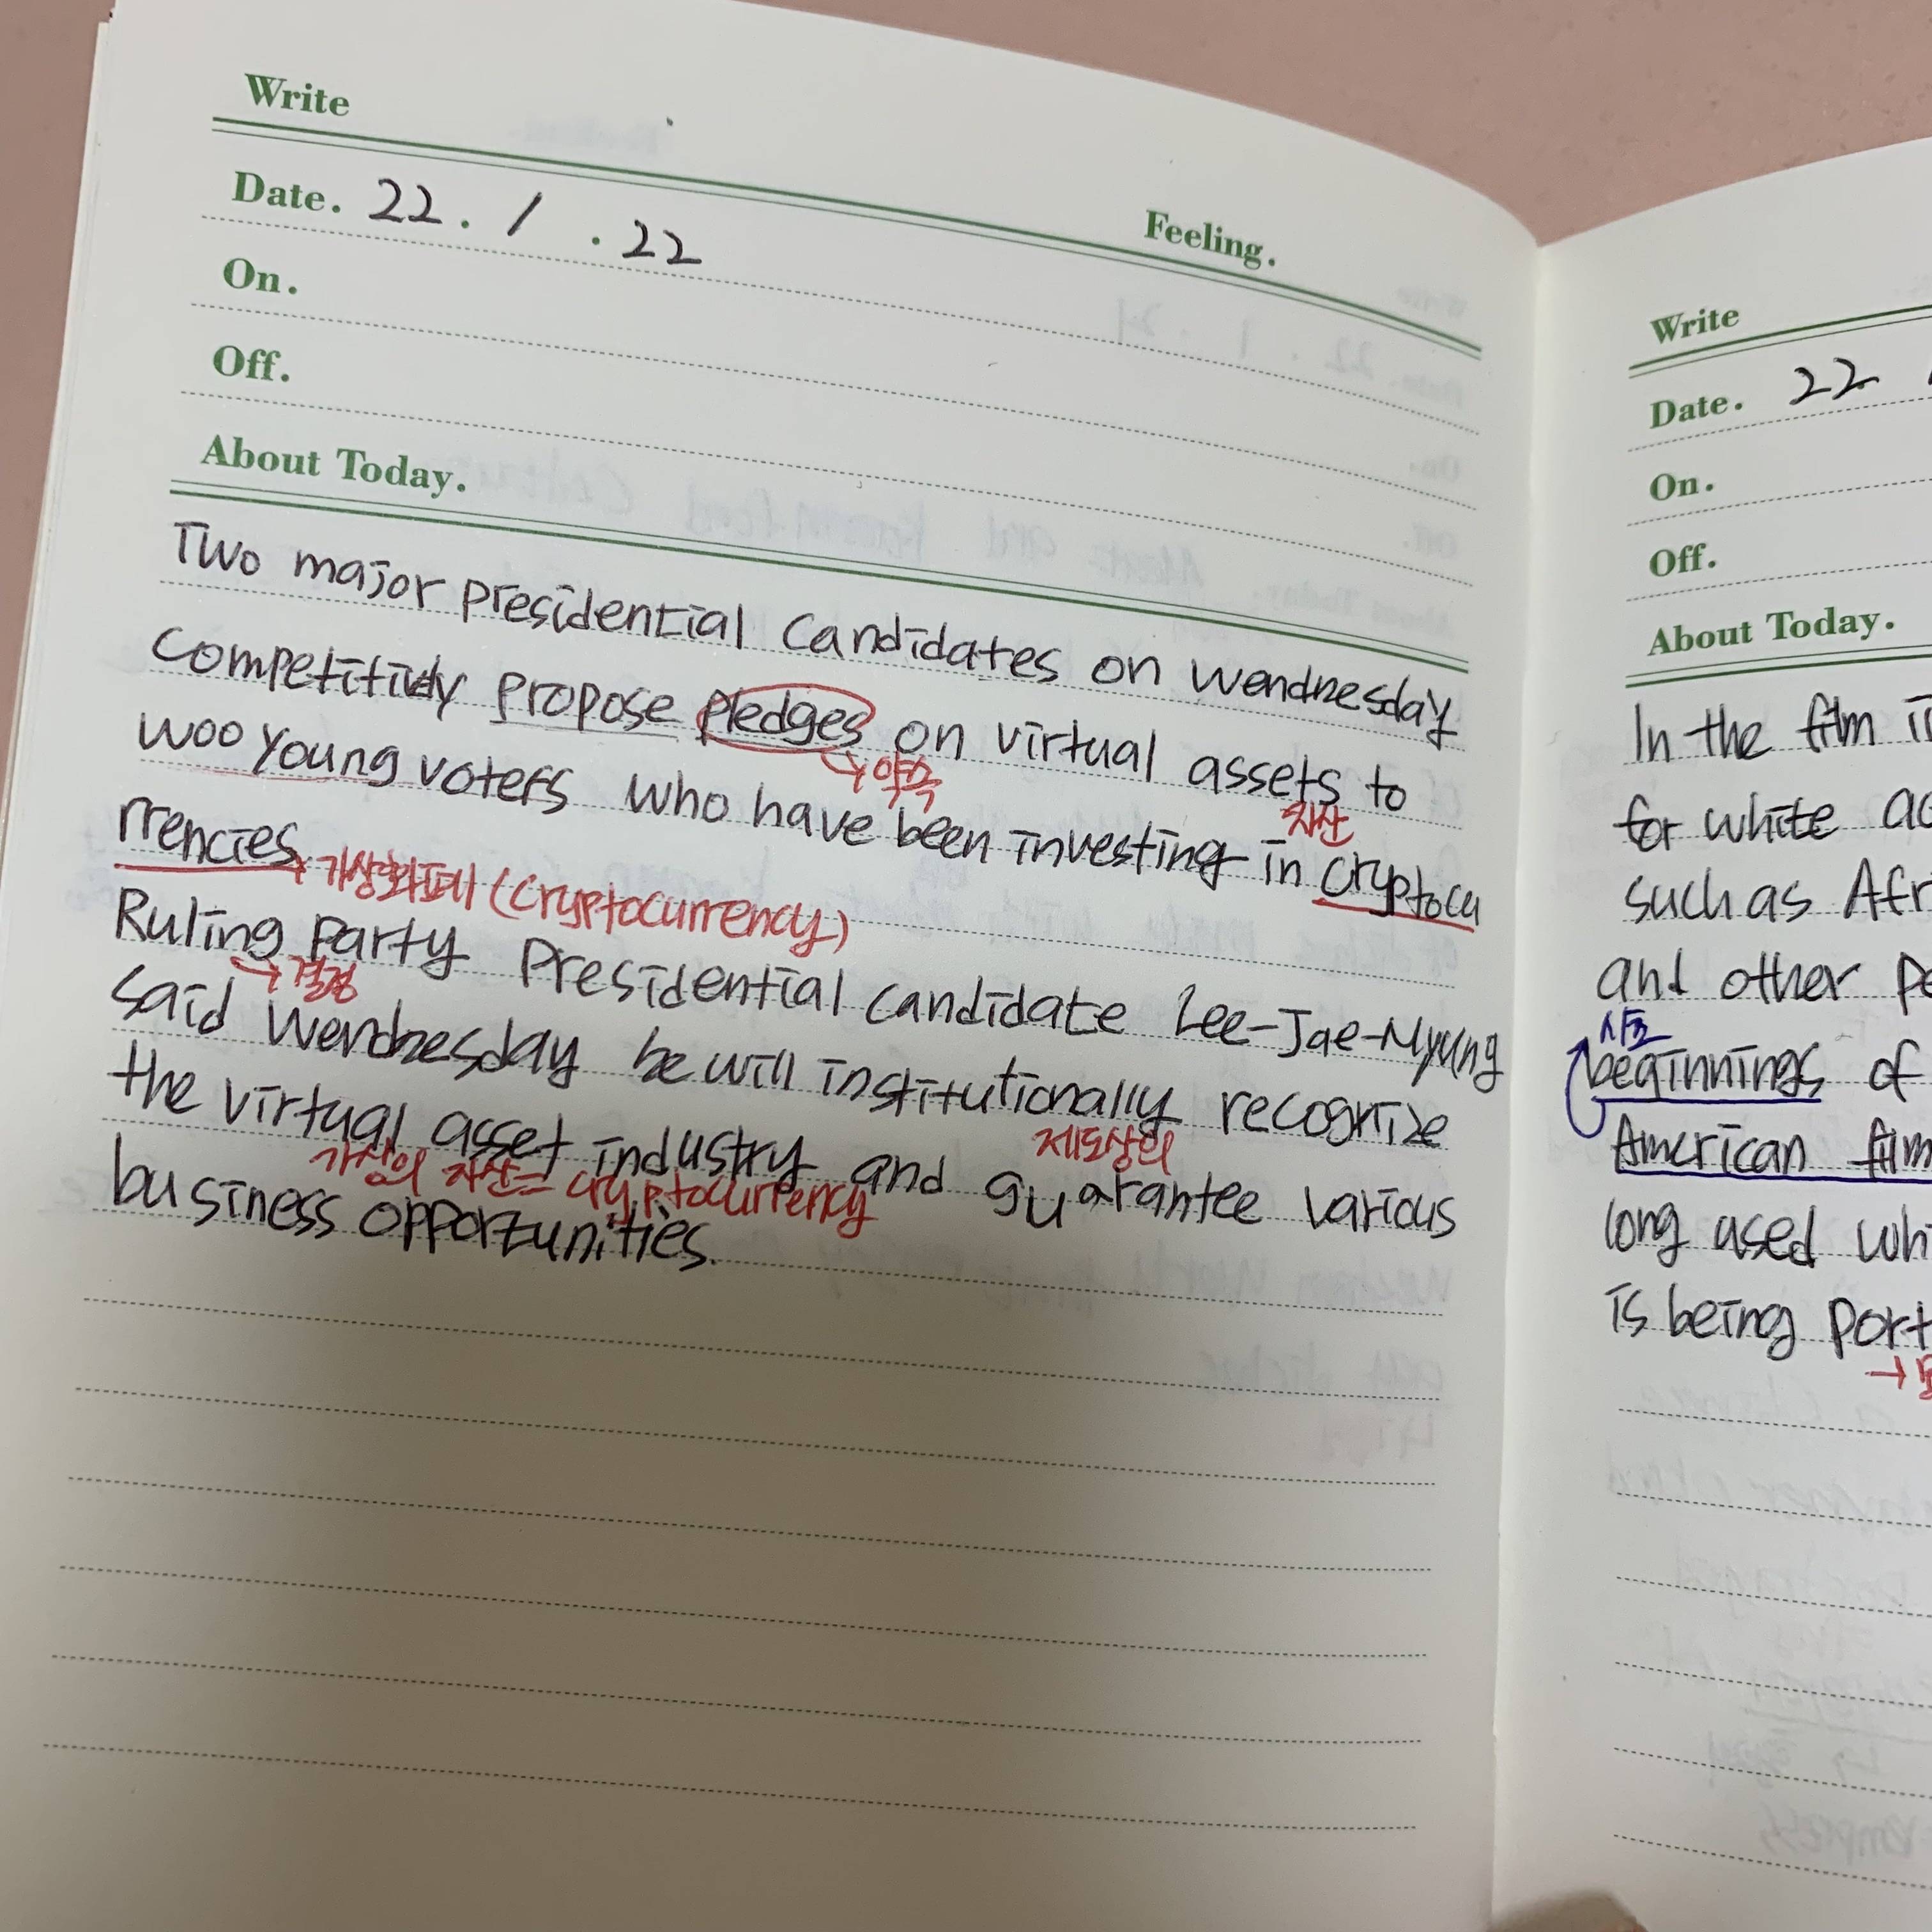 Write
Date. 22. 1 . 22
Feeling.
On.
Off.
About Today.
Two major presidential candidates on wendnesday
competitively propose pledges on virtual assets to
→ 약속
자산
woo young voters who have been investing in cryptocu
rrencies → 가상화폐 (cryptocurrency)
Ruling party presidential candidate Lee-Jae-Myung
→ 결정
said wendnesday he will institutionally recognize
제도상의
the virtual asset industry and guarantee various
가상의 자산 = cryptocurrency
business opportunities.
Write
Date. 22
On.
Off.
About Today.
In the film
for white
such as
and other
시초
beginnings of
American film
long used
is being
→